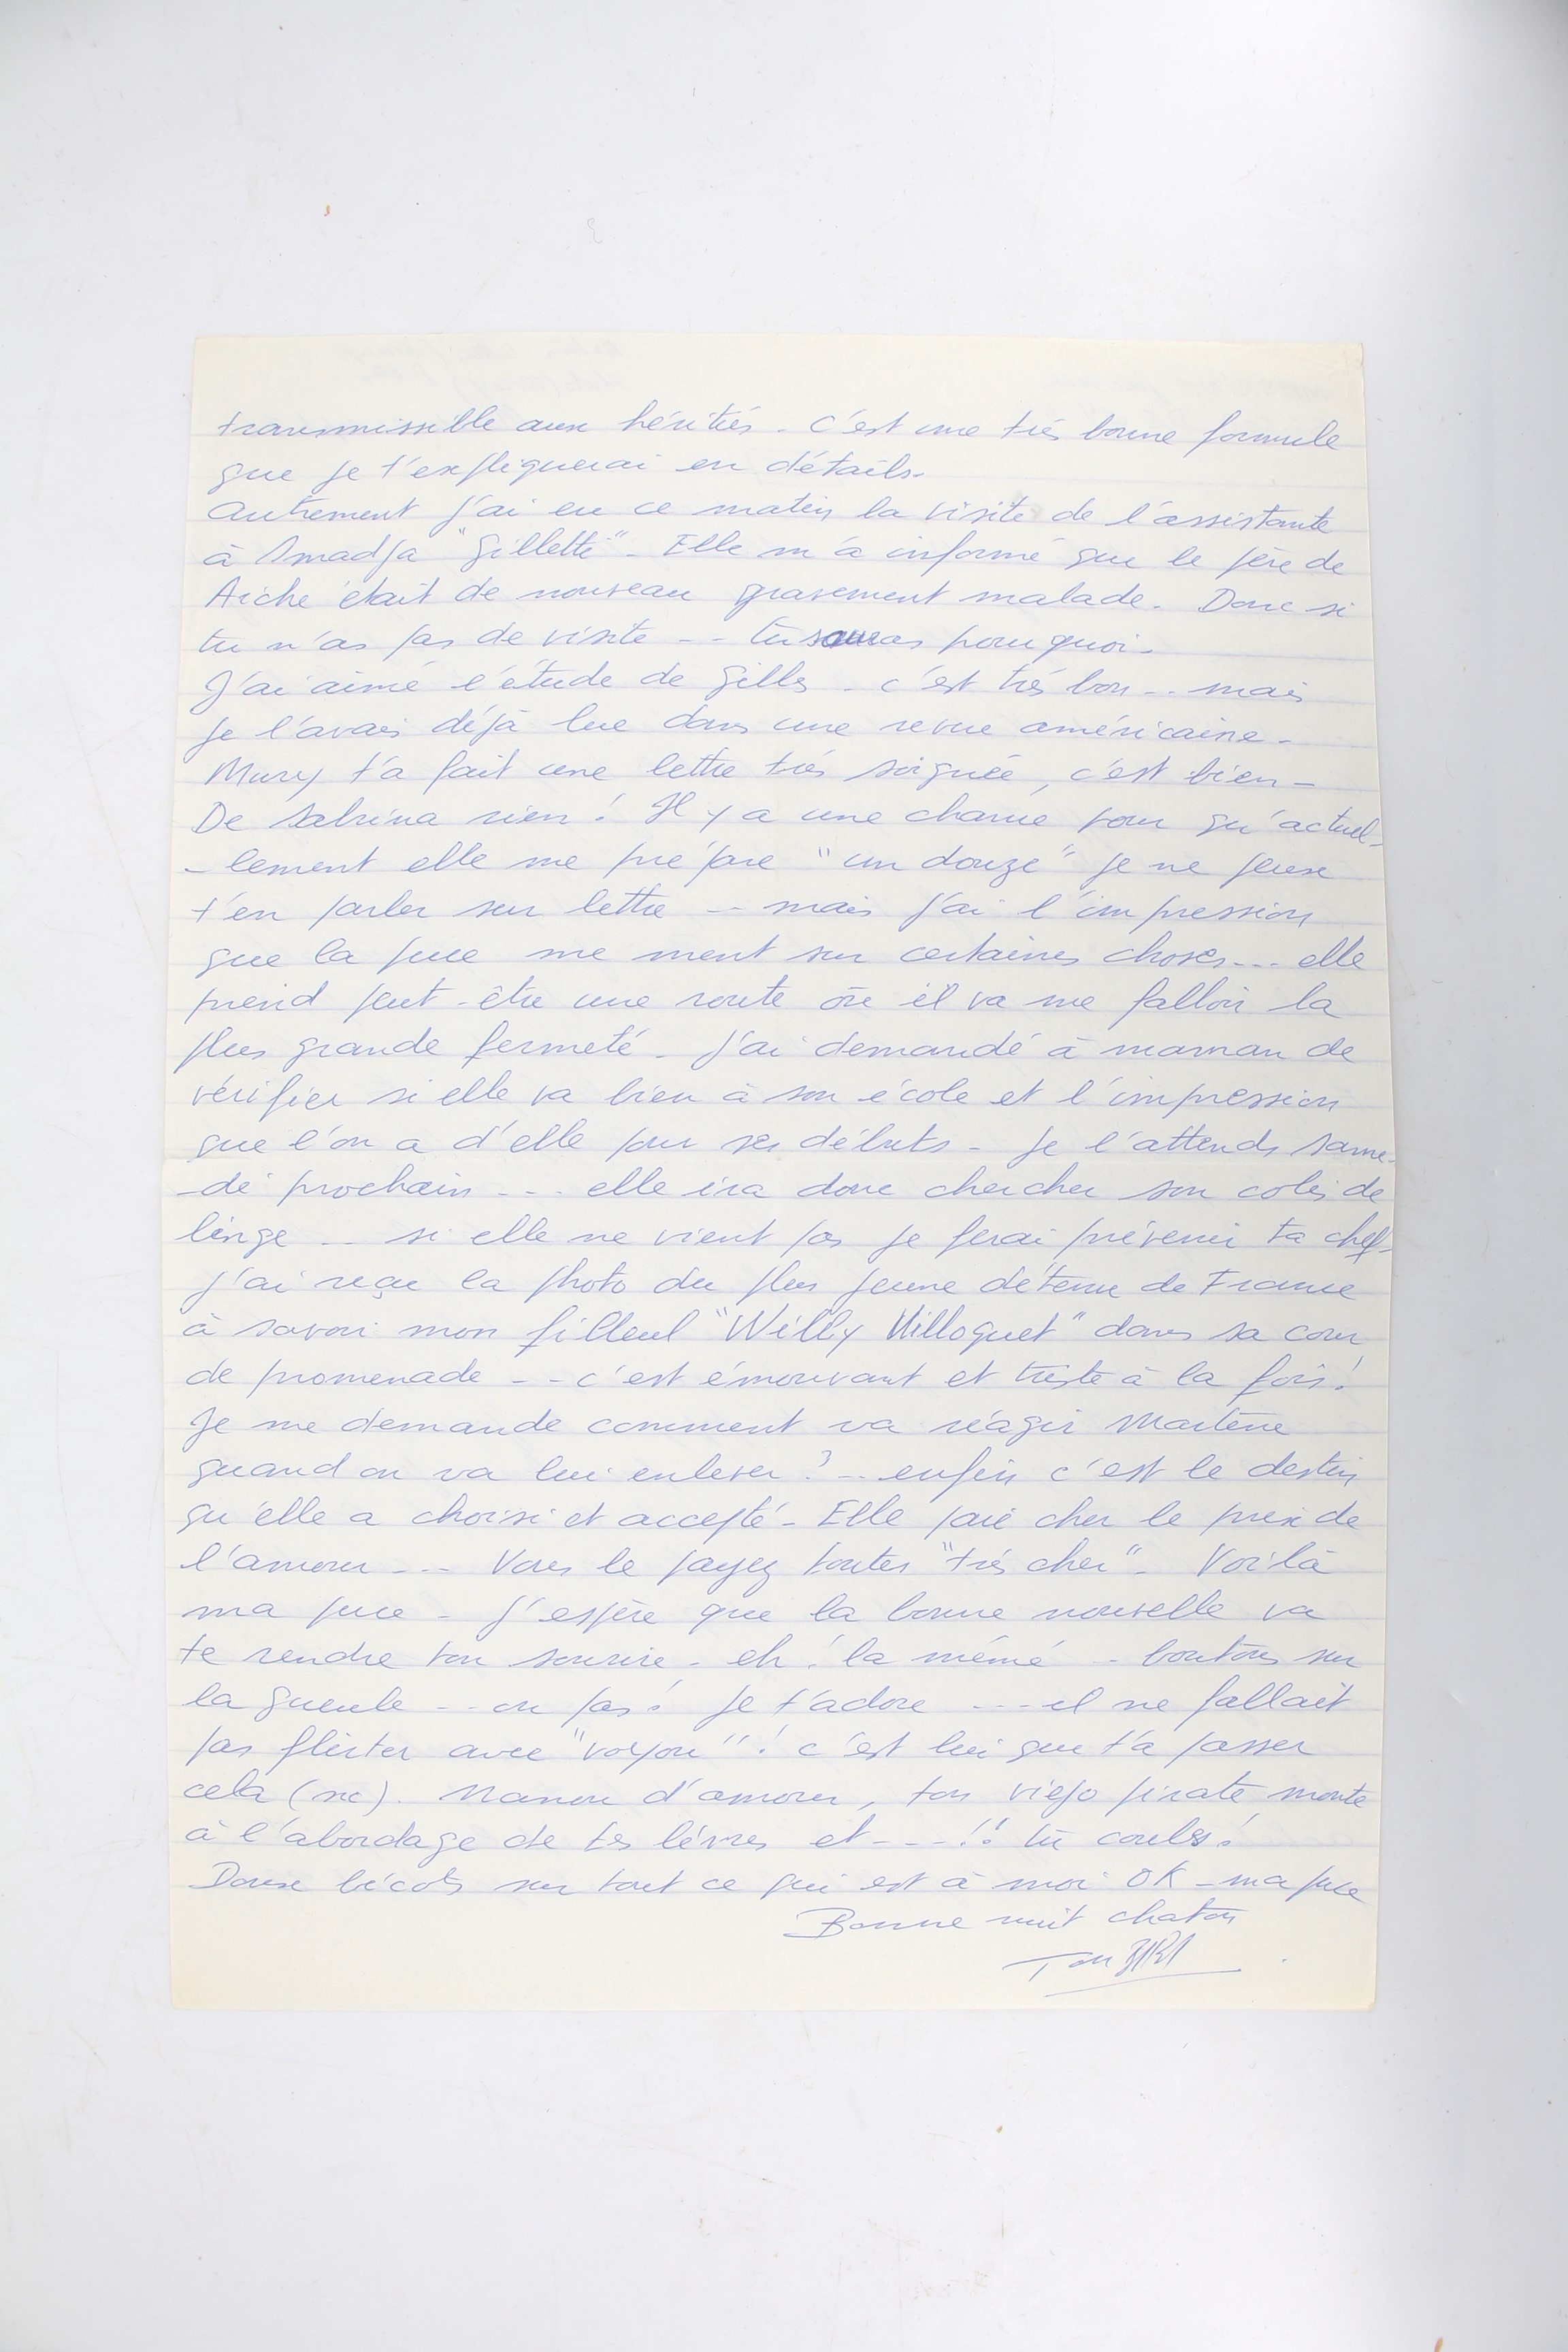 transmissible aux héritiés. c'est une très bonne formule
que je t'expliquerai en détails.
Autrement j'ai eu ce matin la visite de l'assistante
à Smadja "Gillette" - Elle m'a informé que le père de
Aiche était de nouveau gravement malade. Donc si
tu n'as pas de visite -- tu sauras pourquoi.
J'ai aimé l'étude de Gilles - c'est très bon -- mais
je l'avais déjà lue dans une revue américaine -
Mury t'a fait une lettre très soignée, c'est bien -
De Sabrina rien ! Il y a une chance pour qu'actuel-
-lement elle me prépare "un douze" je ne peux
t'en parler sur lettre -- mais j'ai l'impression
que la puce me ment sur certaines choses --- elle
prend peut-être une route où il va me falloir la
plus grande fermeté - J'ai demandé à maman de
vérifier si elle va bien à son école et l'impression
que l'on a d'elle pour ses débuts - Je l'attends same-
-di prochain --- elle ira donc chercher son colis de
linge -- si elle ne vient pas je ferai prévenir ta chef-
J'ai reçu la photo du plus jeune détenu de France
à savoir mon filleul "Willy Villoquet" dans sa cour
de promenade -- c'est émouvant et triste à la fois !
Je me demande comment va réagir Martine
quand on va lui enlever ? -- enfin c'est le destin
qu'elle a choisi et accepté - Elle paie cher le prix de
l'amour --- Vous le payez toutes "très cher" - Voilà
ma puce - J'espère que la bonne nouvelle va
te rendre ton sourire - eh ! la mémé -- boutons sur
la gueule -- ou pas ! Je t'adore --- il ne fallait
pas flirter avec "voyou" ! c'est lui qui t'a passer
cela (sic). Nanou d'amour, ton viejo pirate monte
à l'abordage de tes lèvres et --- !! tu coules !
Doux bécots sur tout ce qui est à moi OK - ma puce
Bonne nuit chaton
Ton